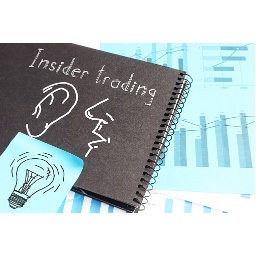 Insider trading